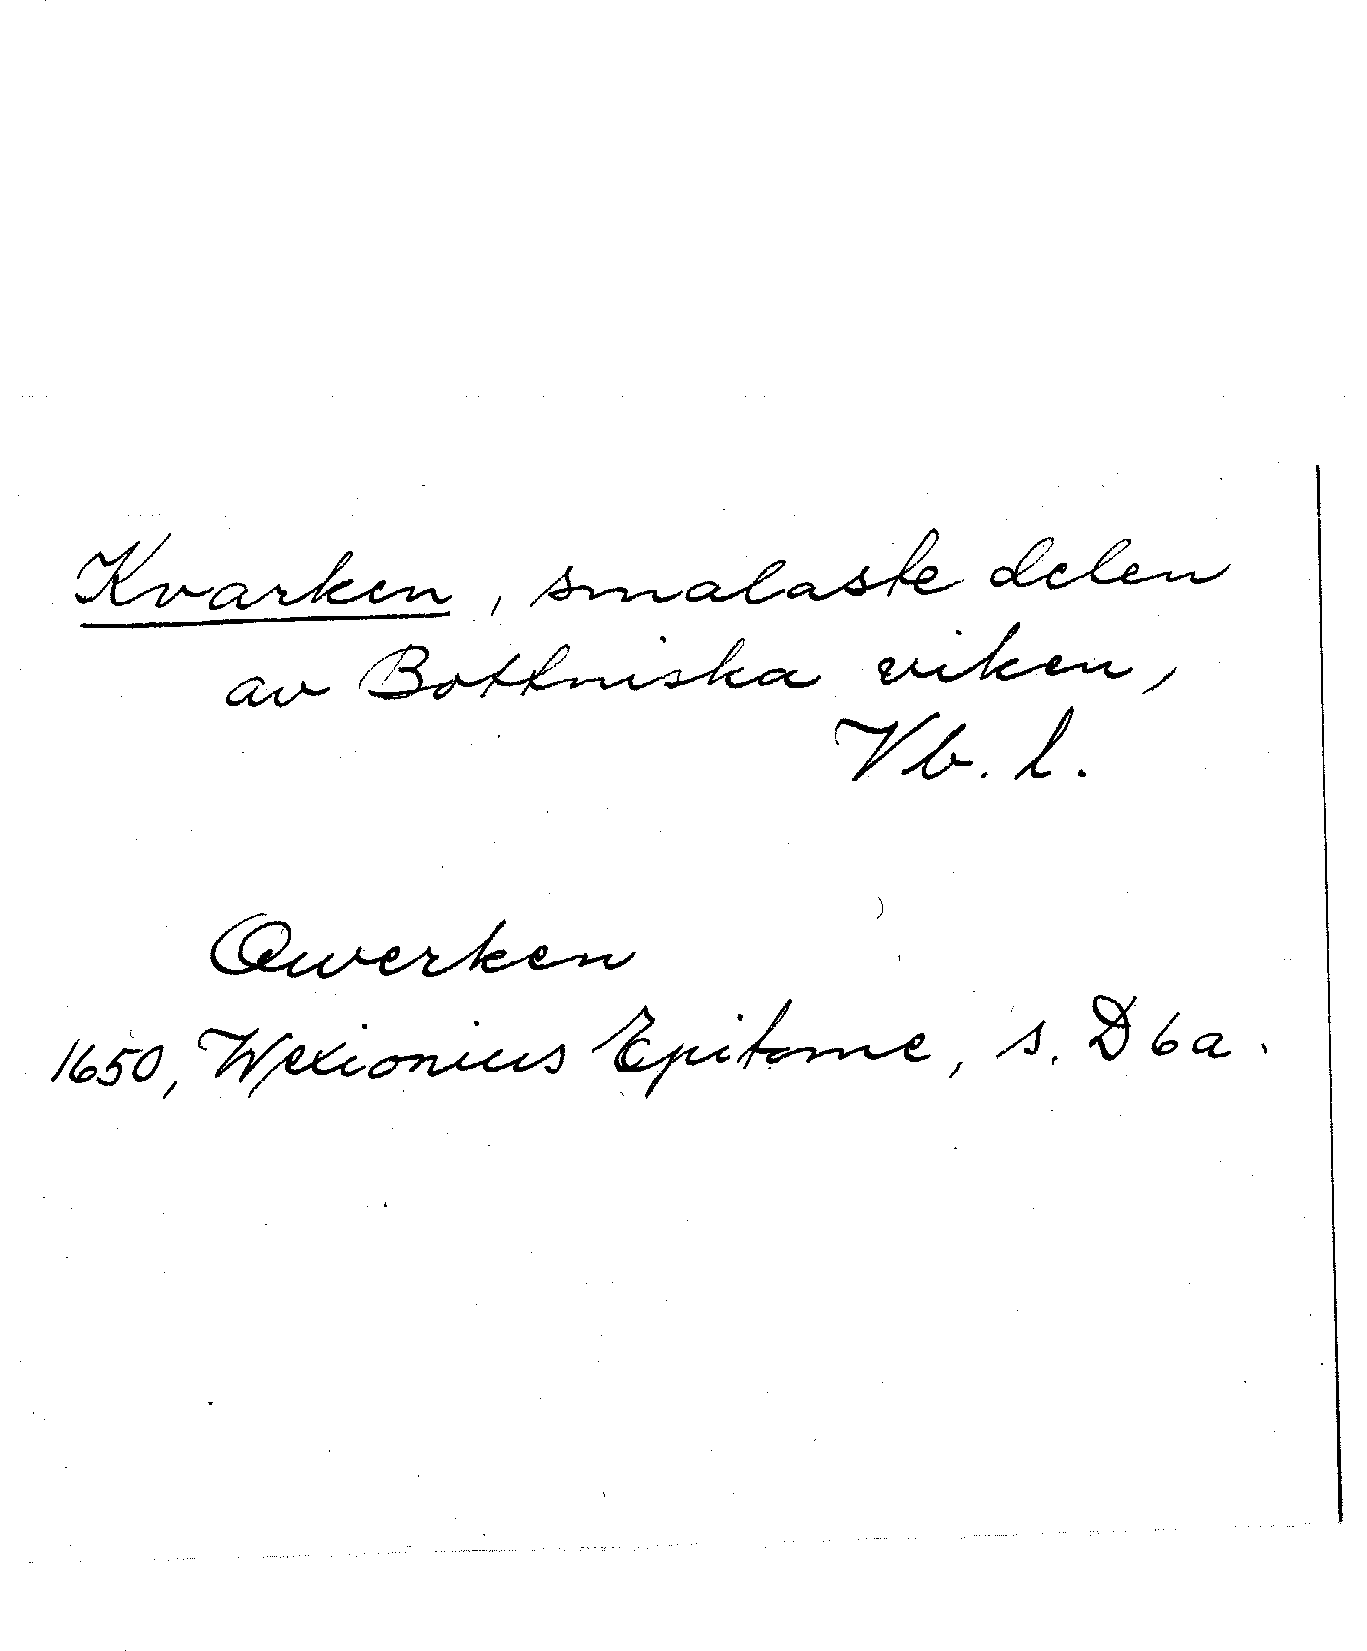 Kvarken, smalaste delen
av Bottniska viken,
Vb. l.
Qwerken
1650, Wexionius Epitome, s. D6a.